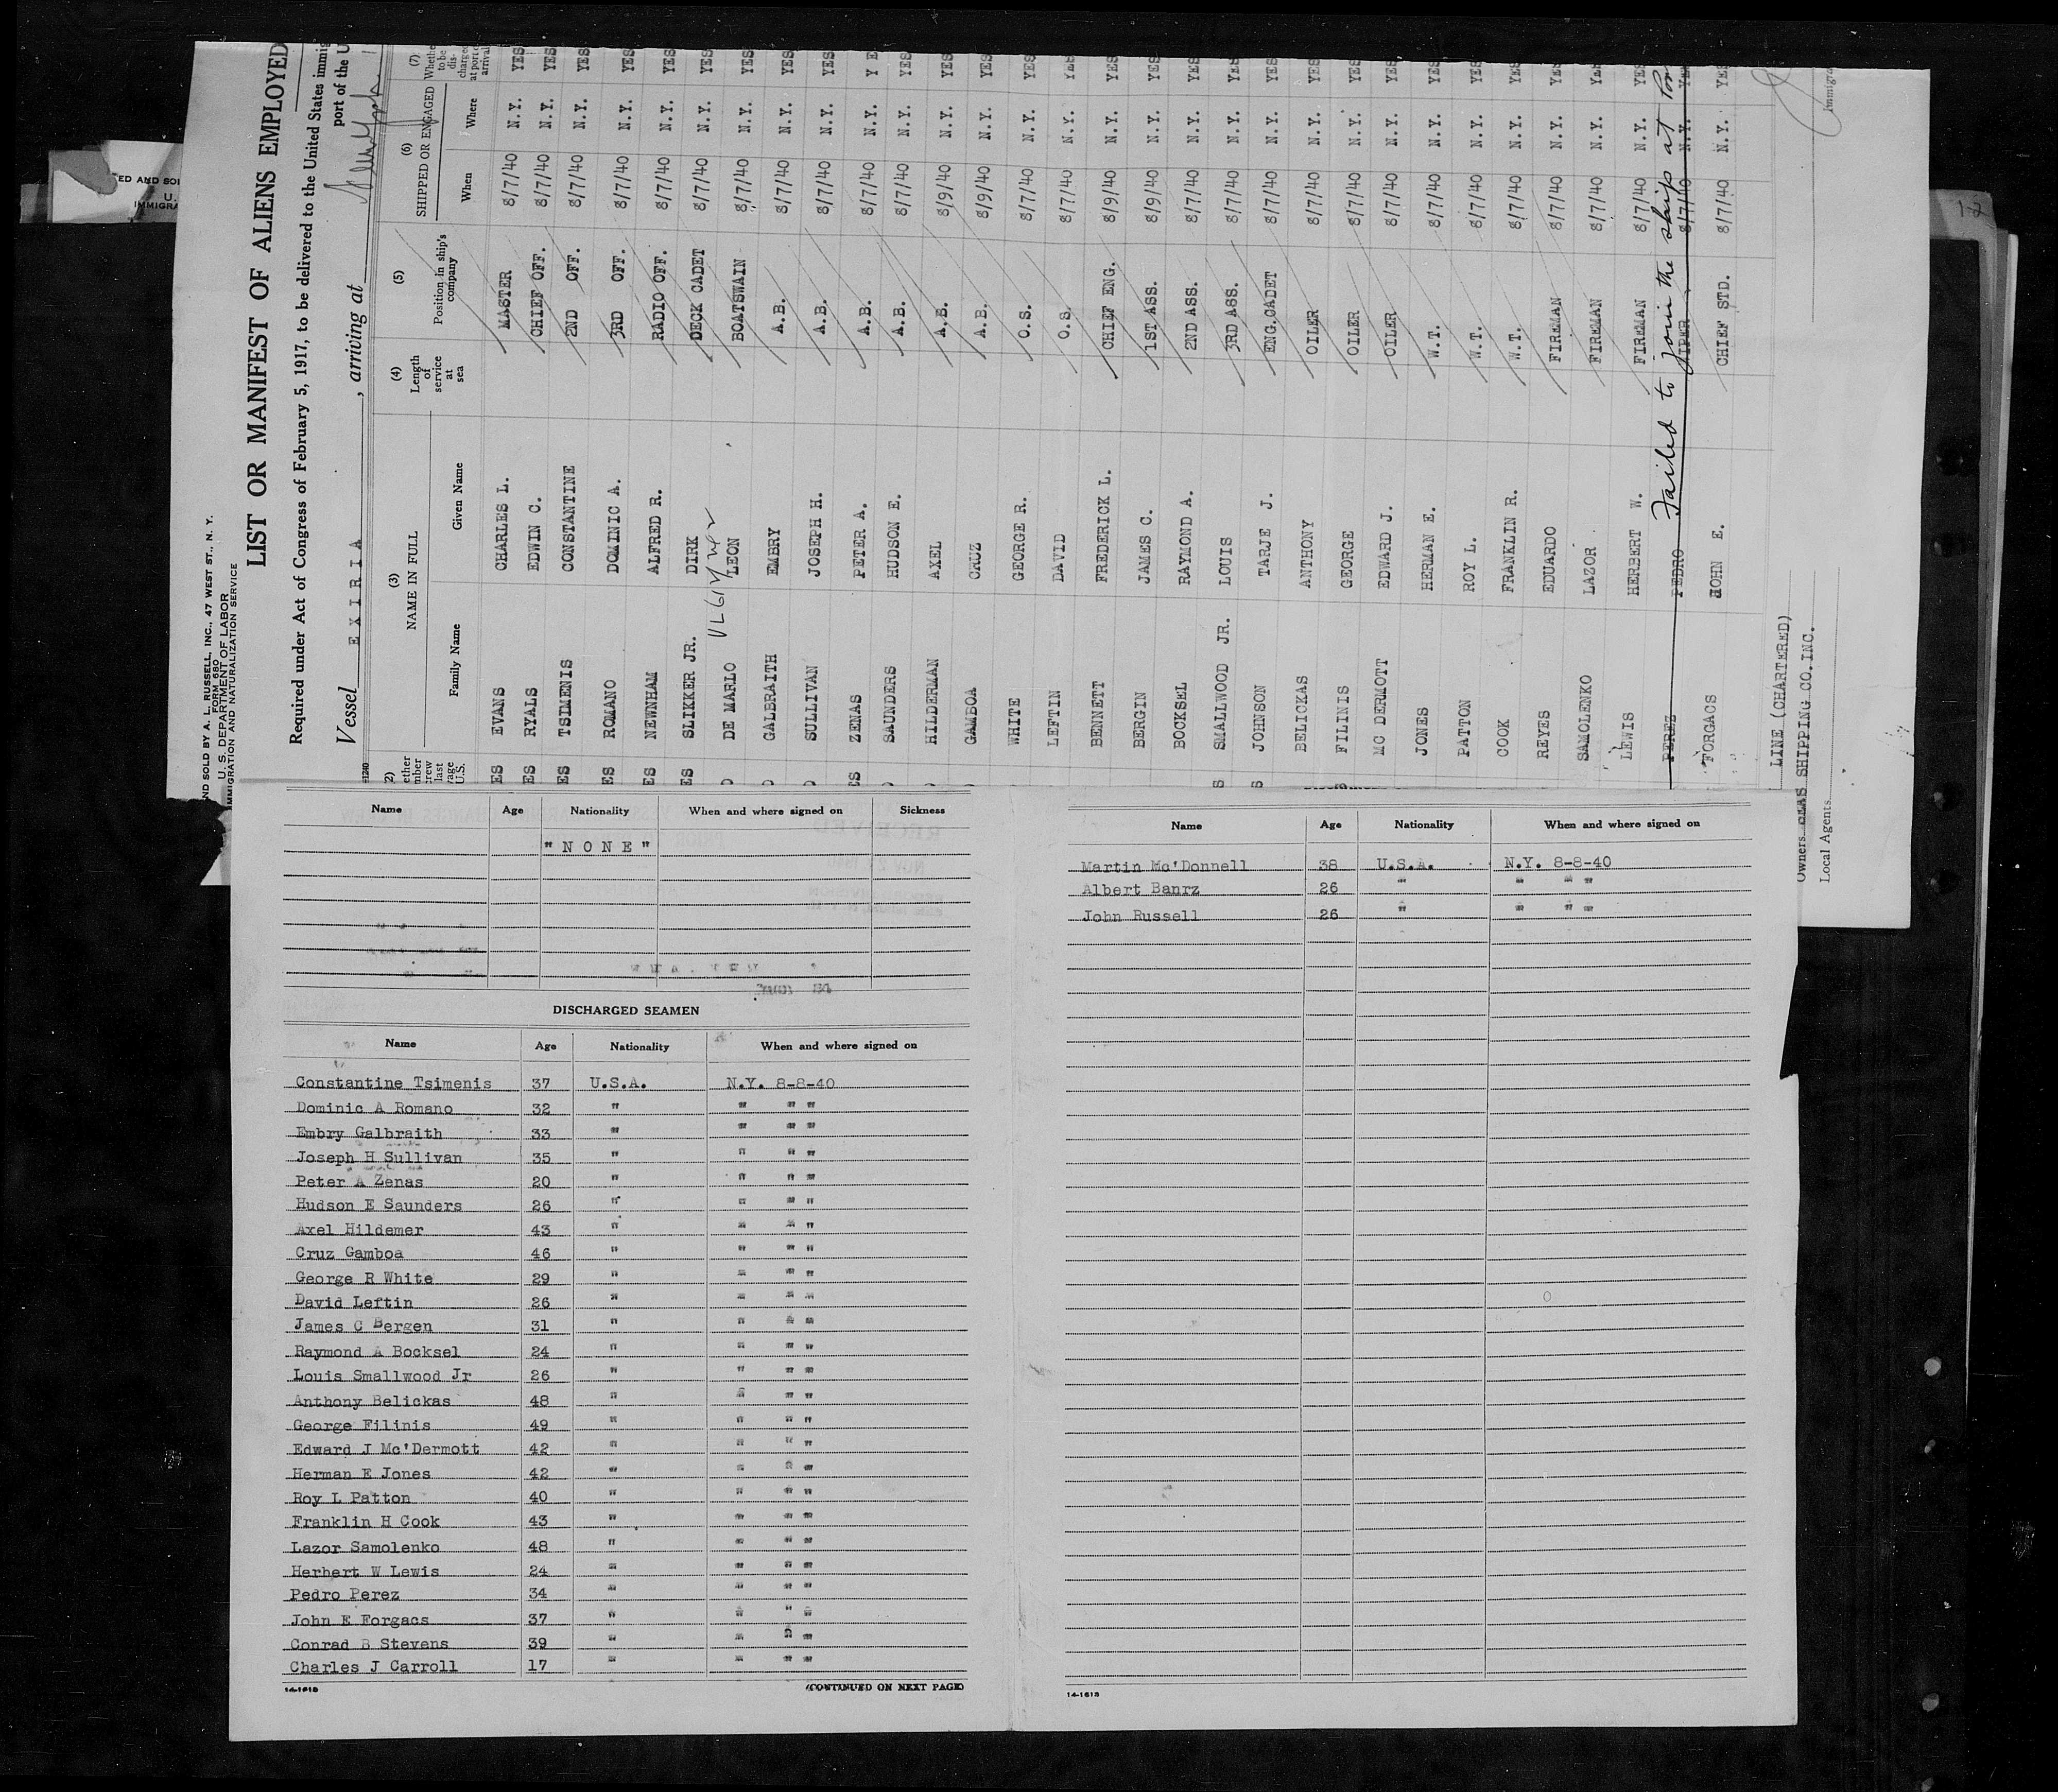 ND SOLD BY A. L. RUSSELL, INC., 47 WEST ST., N. Y.
FORM 680
U. S. DEPARTMENT OF LABOR
IMMIGRATION AND NATURALIZATION SERVICE
LIST OR MANIFEST OF ALIENS EMPLOYED
Required under Act of Congress of February 5, 1917, to be delivered to the United States immig
port of the U
Vessel EXIRIA, arriving at New York
(3) NAME IN FULL (4) Length of service at sea (5) Position in ship's company (6) SHIPPED OR ENGAGED (7) Whether to be discharged at port of arrival
Family Name Given Name When Where
ES EVANS CHARLES L. MASTER 8/7/40 N.Y. YES
ES RYALS EDWIN C. CHIEF OFF. 8/7/40 N.Y. YES
ES TSIMENIS CONSTANTINE 2ND OFF. 8/7/40 N.Y. YES
ES ROMANO DOMINIC A. 3RD OFF. 8/7/40 N.Y. YES
ES NEWNHAM ALFRED R. RADIO OFF. 8/7/40 N.Y. YES
ES SLIKKER JR. DIRK DECK CADET 8/7/40 N.Y. YES
DE MARLO LEON BOATSWAIN 8/7/40 N.Y. YES
GALBRAITH EMBRY A.B. 8/7/40 N.Y. YES
SULLIVAN JOSEPH H. A.B. 8/7/40 N.Y. YES
ES ZENAS PETER A. A.B. 8/7/40 N.Y. Y E
SAUNDERS HUDSON E. A.B. 8/7/40 N.Y. YES
HILDERMAN AXEL A.B. 8/9/40 N.Y. YES
GAMBOA CRUZ A.B. 8/9/40 N.Y. YES
WHITE GEORGE R. O.S. 8/7/40 N.Y. YES
LEFTIN DAVID O.S. 8/7/40 N.Y. YES
BENNETT FREDERICK L. CHIEF ENG. 8/9/40 N.Y. YES
BERGIN JAMES C. 1ST ASS. 8/9/40 N.Y. YES
BOCKSEL RAYMOND A. 2ND ASS. 8/7/40 N.Y. YES
S SMALLWOOD JR. LOUIS 3RD ASS. 8/7/40 N.Y. YES
S JOHNSON TARJE J. ENG.CADET 8/7/40 N.Y. YES
BELICKAS ANTHONY OILER 8/7/40 N.Y. YES
FILINIS GEORGE OILER 8/7/40 N.Y. YES
MC DERMOTT EDWARD J. OILER 8/7/40 N.Y. YES
JONES HERMAN E. W.T. 8/7/40 N.Y. YES
PATTON ROY L. W.T. 8/7/40 N.Y. YES
COOK FRANKLIN R. W.T. 8/7/40 N.Y. YES
REYES EDUARDO FIREMAN 8/7/40 N.Y. YES
SAMOLENKO LAZOR FIREMAN 8/7/40 N.Y. YES
LEWIS HERBERT W. FIREMAN 8/7/40 N.Y. YES
Failed to join the ship at
PEREZ PEDRO WIPER 8/7/40 N.Y. YES
FORGACS JOHN E. CHIEF STD. 8/7/40 N.Y. YES
LINE (CHARTERED)
Owners SHIPPING CO.INC.
Local Agents
Immigra
Name Age Nationality When and where signed on Sickness
"NONE"
DISCHARGED SEAMEN
Name Age Nationality When and where signed on
Constantine Tsimenis 37 U.S.A. N.Y. 8-8-40
Dominic A Romano 32 " " " "
Embry Galbraith 33 " " " "
Joseph H Sullivan 35 " " " "
Peter A Zenas 20 " " " "
Hudson E Saunders 26 " " " "
Axel Hildemer 43 " " " "
Cruz Gamboa 46 " " " "
George R White 29 " " " "
David Leftin 26 " " " "
James C Bergen 31 " " " "
Raymond A Bocksel 24 " " " "
Louis Smallwood Jr 26 " " " "
Anthony Belickas 48 " " " "
George Filinis 49 " " " "
Edward J Mc'Dermott 42 " " " "
Herman E Jones 42 " " " "
Roy L Patton 40 " " " "
Franklin H Cook 43 " " " "
Lazor Samolenko 48 " " " "
Herbert W Lewis 24 " " " "
Pedro Perez 34 " " " "
John E Forgacs 37 " " " "
Conrad B Stevens 39 " " " "
Charles J Carroll 17 " " " "
14-1613 (CONTINUED ON NEXT PAGE)
Name Age Nationality When and where signed on
Martin Mc'Donnell 38 U.S.A. N.Y. 8-8-40
Albert Banrz 26 " " " "
John Russell 26 " " " "
14-1613